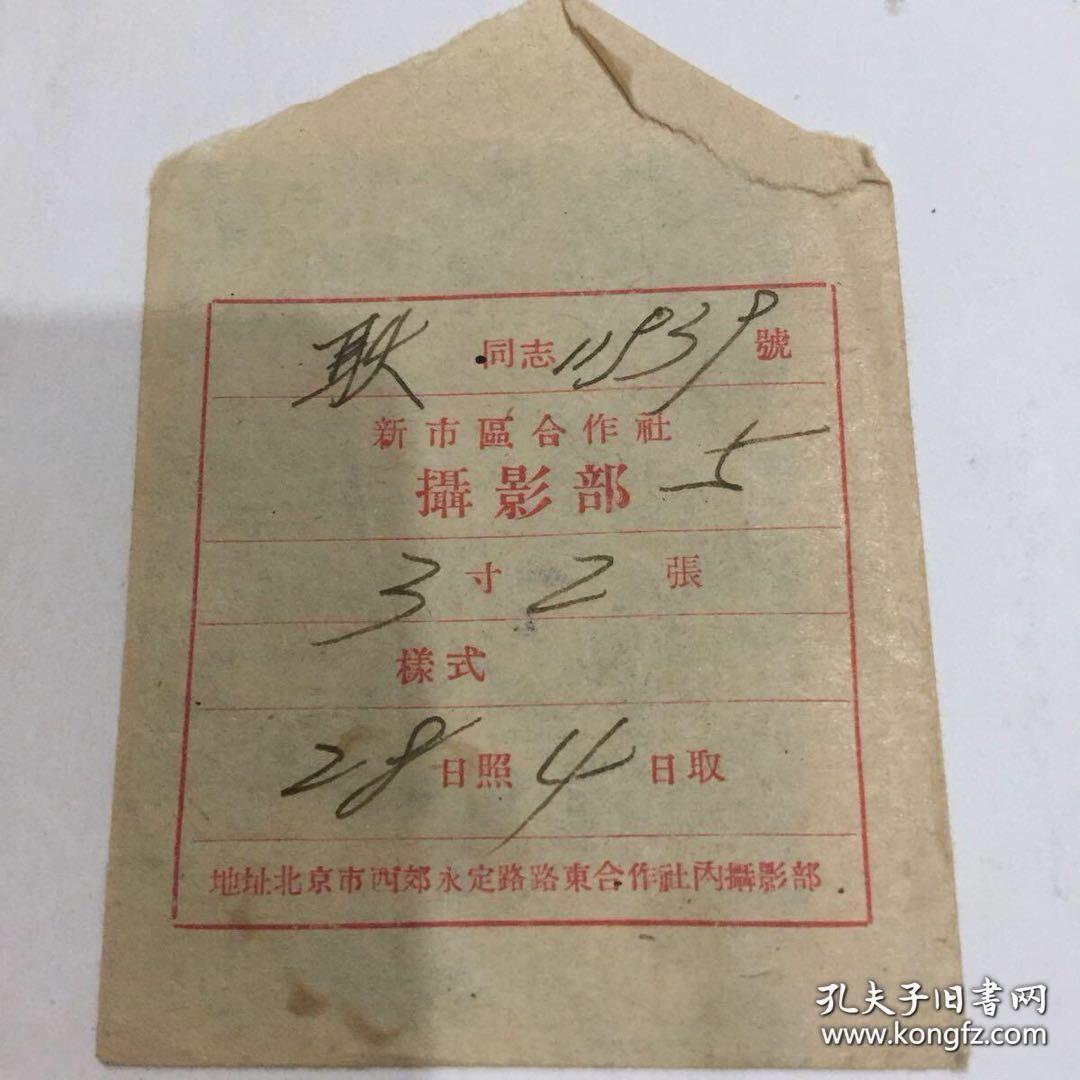 耿 同志 11939 號
新市區合作社
攝影部
3 寸 2 張
樣式
28 日照 4 日取
地址北京市西郊永定路路東合作社內攝影部
孔夫子旧書网
www.kongfz.com